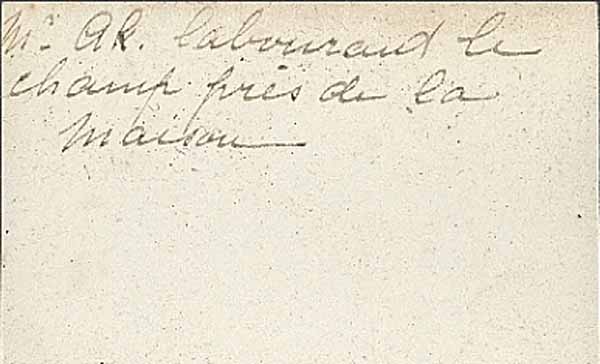 Mr. Ak. labourant le
champ près de la
maison